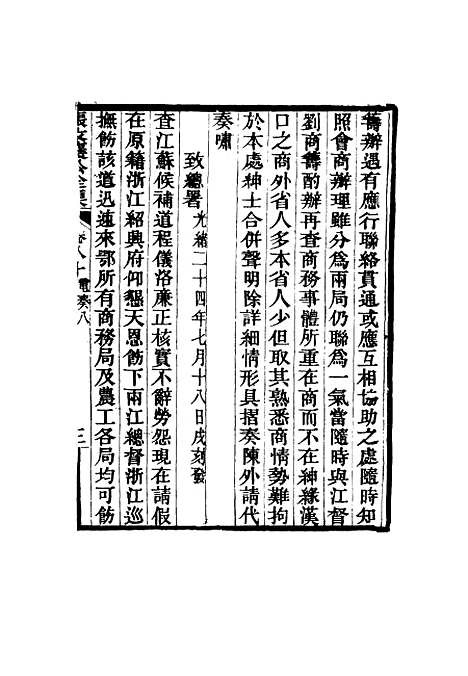 籌辦遇有應行聯絡貫通或應互相協助之處隨時知
照會商辦理雖分爲兩局仍聯爲一氣當隨時與江督
劉商籌酌辦再查商務事體所重在商而不在紳緣漢
口之商外省人多本省人少但取其熟悉商情勢難拘
於本處紳士合併聲明除詳細情形具摺奏陳外請代
奏嘯
致總署光緒二十四年七月十八日戌刻發
查江蘇候補道程儀洛廉正核實不辭勞怨現在請假
在原籍浙江紹興府仰懇天恩飭下兩江總督浙江巡
撫飭該道迅速來鄂所有商務局及農工各局均可飭
卷八十 電奏八
三